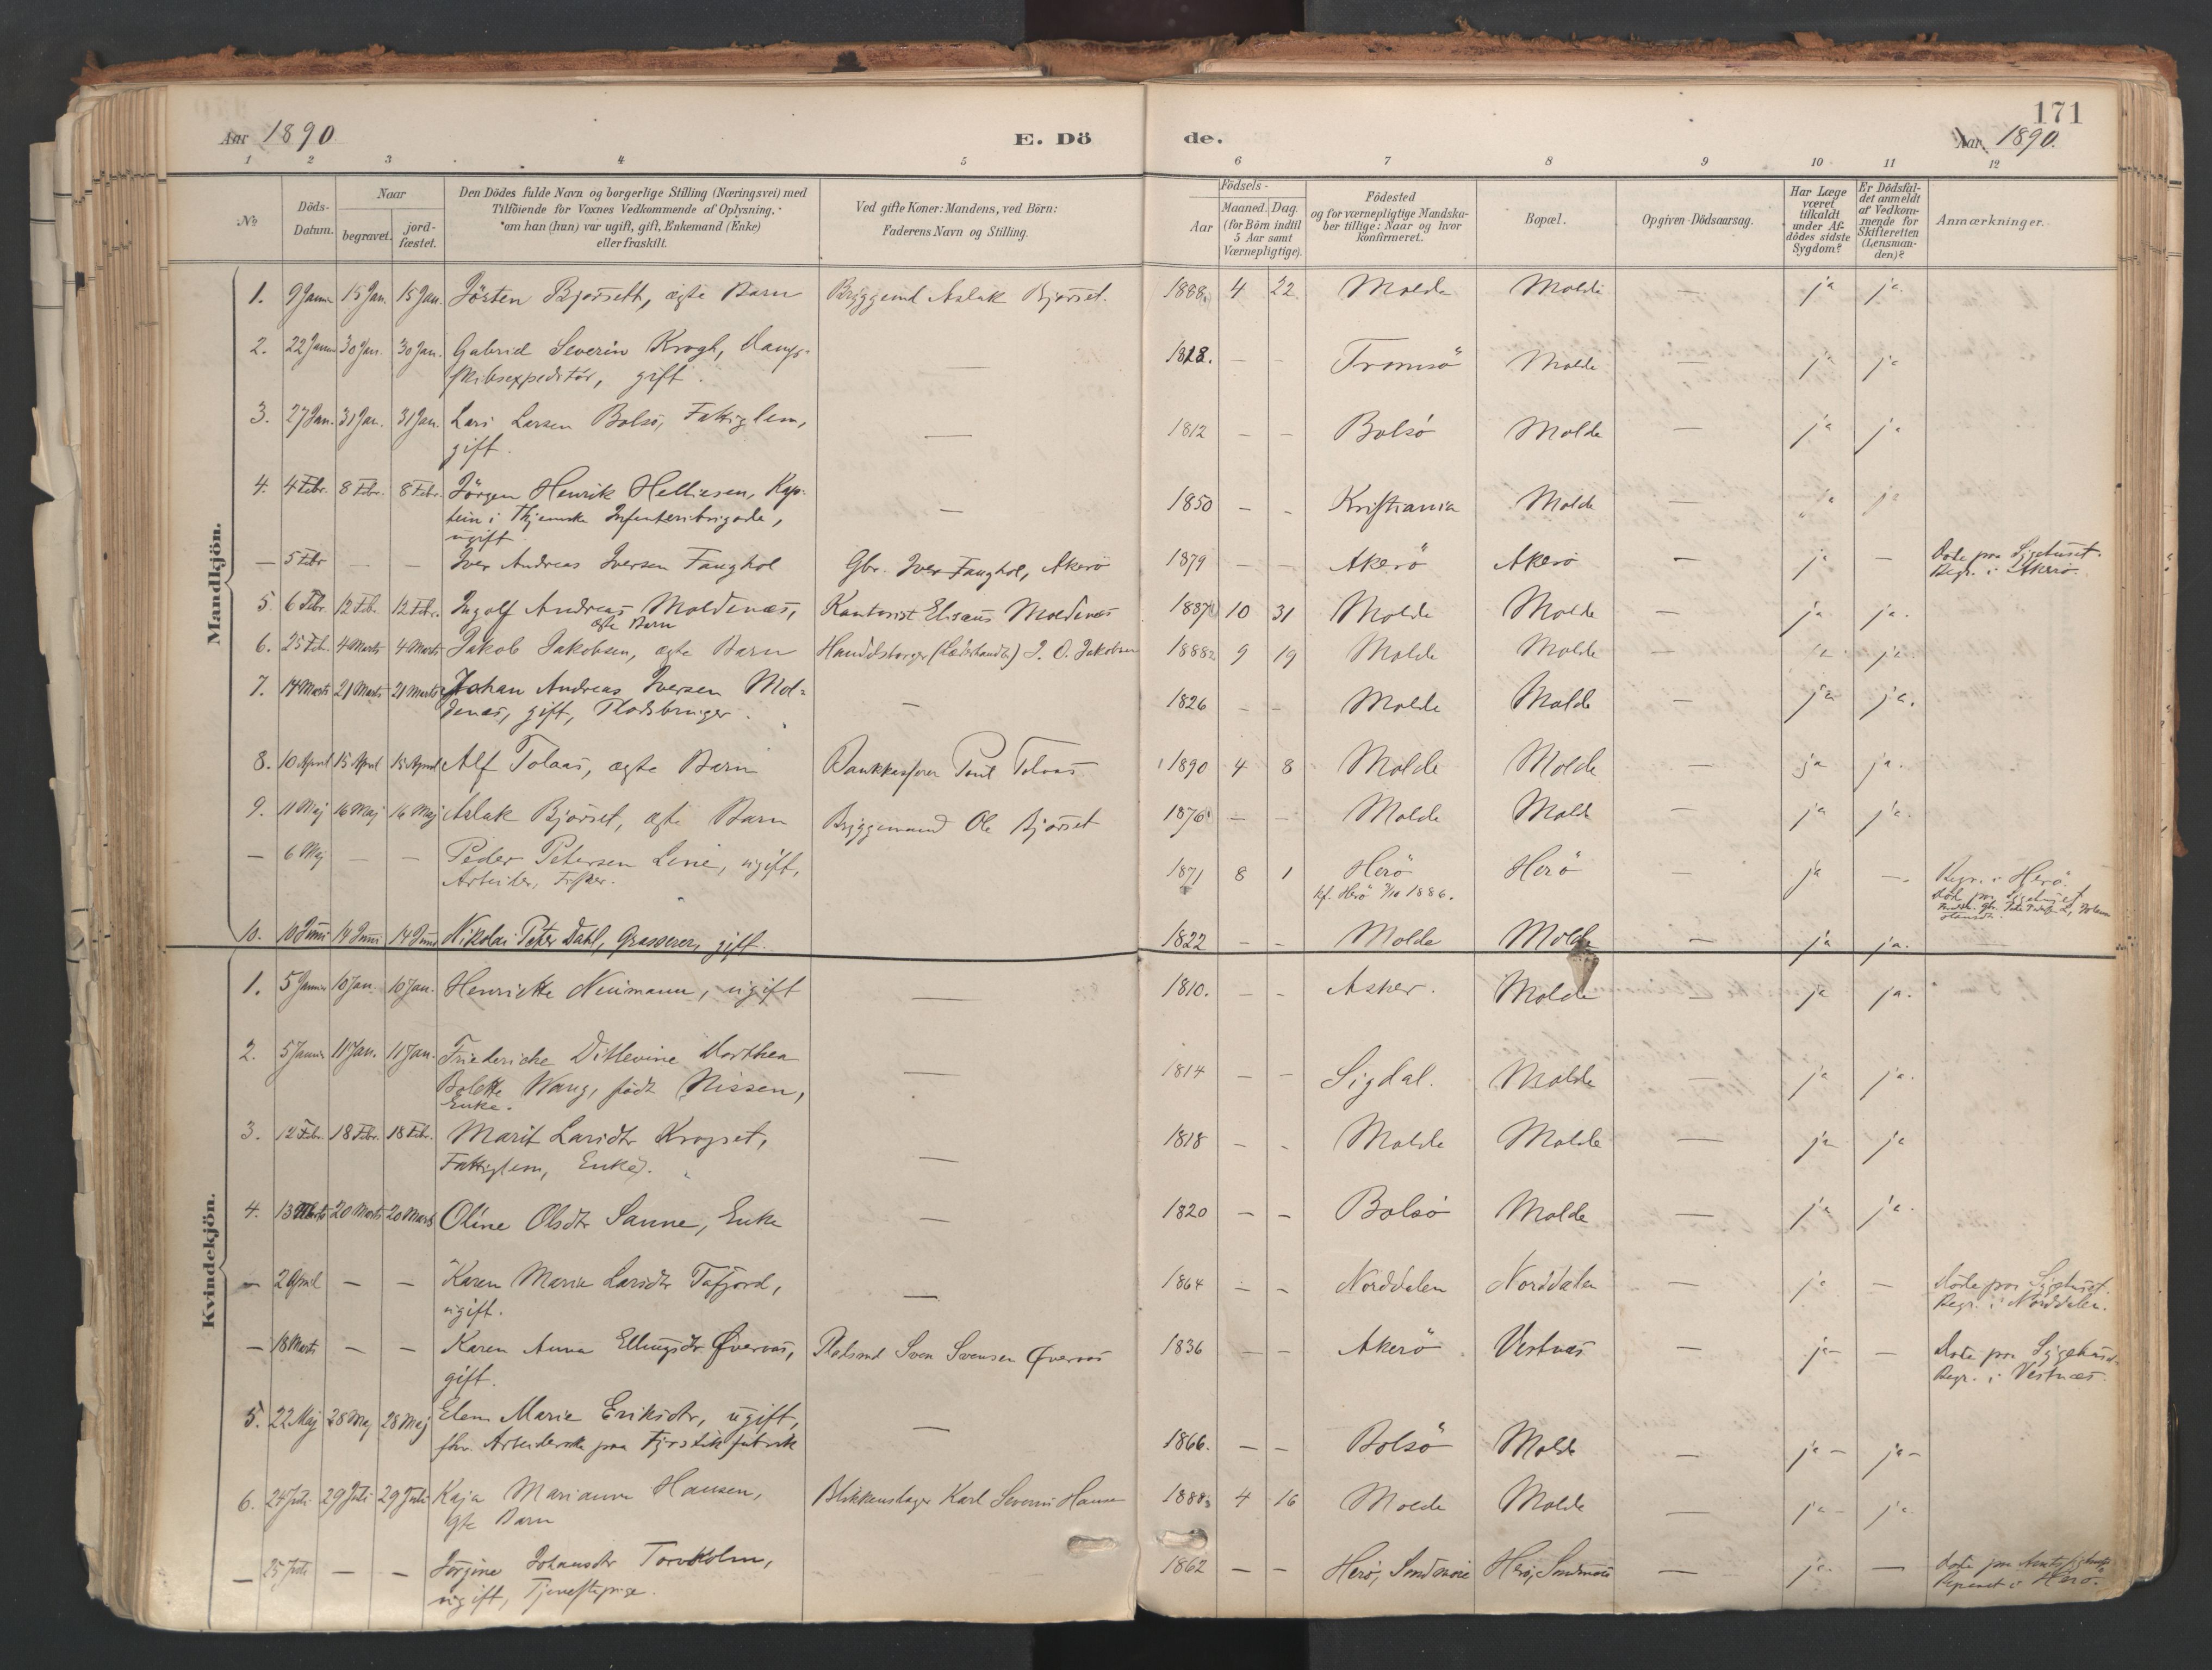 171
Aar 1890
E. Dö
de.
Aar 1890.
1 2 3 4 5 6 7 8 9 10 11 12
No
Döds-
Datum.
Naar
begravet.
jord-
fæstet.
Den Dödes fulde Navn og borgerlige Stilling (Næringsvei) med
Tilföiende for Voxnes Vedkommende af Oplysning,
*om han (hun) var ugift, gift, Enkemand (Enke)
eller fraskilt.
Ved gifte Koner: Mandens, ved Börn:
Faderens Navn og Stilling.
Födsels-
Aar
Maaned. Dag.
(for Börn indtil
5 Aar samt
Værnepligtige).
Födested
og for værnepligtige Mandska-
ber tillige: Naar og hvor
konfirmeret.
Bopæl.
Opgiven Dödsaarsag.
Har Læge
været
tilkaldt
under Af-
dödes sidste
Sygdom?
Er Dödsfal-
det anmeldt
af Vedkom-
mende for
Skifteretten
(Lensman-
den)?
Anmærkninger.
Mandkjön.
1. 9 Januar 15 Jan. 15 Jan. Jörsten Bjorsett, ægte Barn Bryggemd Aslak Bjorset. 1888 4 22 Molde Molde — ja ja
2. 22 Januar 30 Jan. 30 Jan. Gabriel Severin Krogh, Damp-
skibsexpeditör, gift. — 1828. — — Tromsö Molde — ja ja
3. 27 Jan. 31 Jan. 31 Jan. Lars Larsen Bolsö, Fattiglem,
gift. — 1812 — — Bolsö Molde — ja ja
4. 4 Febr. 8 Febr. 8 Febr. Jörgen Henrik Helliesen, Kap-
tein i Thjemske Infanteribrigade,
ugift — 1850 — — Kristiania Molde — ja ja
— 5 Febr — — Iver Andreas Iversen Fanghol Gbr. Iver Fanghol, Akerö 1879 — — Akerö Akerö — ja — Döde paa Sygehuset.
Begr. i Akerö.
5. 6 Febr. 12 Feb. 12 Febr. Ingolf Andreas Moldenæs,
ægte Barn Kontorist Elisæus Moldenæs 1887 10 31 Molde Molde — ja ja.
6. 25 Feb. 4 Marts 4 Marts Jakob Jakobsen, ægte Barn Handelsborger (Læderhandl.) J. O. Jakobsen 1888 9 19 Molde Molde — ja ja.
7. 14 Marts 21 Marts 21 Marts Johan Andreas Iversen Mol-
denæs, gift, Pladsbruger. — 1826 — — Molde Molde — ja ja.
8. 10 April 15 April 15 April Alf Tolaas, ægte Barn Bankkasserer Poul Tolaas 1890 4 8 Molde Molde — ja ja.
9. 11 Maj 16 Maj 16 Maj Aslak Bjorset, ægte Barn Bryggemand Ole Bjorset 1876 — — Molde Molde — ja ja.
— 6 Maj — — Peder Petersen Leine, ugift,
Arbeider, Fisker. 1871 8 1 Herö
kf. Herö 3/10 1886. Herö — ja — Begr. i Herö.
Död paa Sygehuset
10. 10 Juni 14 Juni 14 Juni Nikolai Peter Dahl, Grosserer, gift. 1822 — — Molde Molde — ja ja.
Kvindekjön.
1. 5 Januar 10 Jan. 10 Jan. Henriette Neumann, ugift — 1810. — — Asker. Molde — ja ja.
2. 5 Januar 11 Jan. 11 Jan. Friedericke Ditlevine Dorthea
Bolette Wang, född Nissen,
Enke. — 1814 — — Sigdal. Molde — ja ja.
3. 12 Febr. 18 Febr. 18 Febr. Marit Larsdtr Kropset,
Fattiglem, Enke. — 1818 — — Molde Molde — ja ja
4. 13 Marts 20 Marts 20 Marts Oline Olsdtr Sanne, Enke — 1820 — — Bolsö Molde — ja ja.
— 2 April — — Karen Marie Larsdtr Tafjord,
ugift. — 1864 — — Norddalen Norddalen — ja — Döde paa Sygehuset.
Begr. i Norddalen.
— 18 Marts — — Karen Anna Ellingsdtr Øveraas,
gift. Pladsmd Sven Svensen Øveraas 1836 — — Akerö Vestnæs — ja — Döde paa Sygehuset
Begr. i Vestnæs.
5. 22 Maj 28 Maj 28 Maj Elen Marie Eriksdtr, ugift,
fhv. Arbeiderske paa Fyrstikfabrik — 1866. — — Bolsö Molde — ja — ja —
6. 24 Juli 29 Juli 29 Juli Kaja Marianne Hansen,
ægte Barn Blikkenslager Karl Severin Hansen 1888 4 16 Molde Molde — ja — ja.
— 25 Juli — — Jörgine Johansdtr Torvholm,
ugift, Tjenestepige. 1862 — — Herö, Söndmöre Herö, Söndmöre — ja. — Döde paa Amtssygehuset
Begravet i Herö.